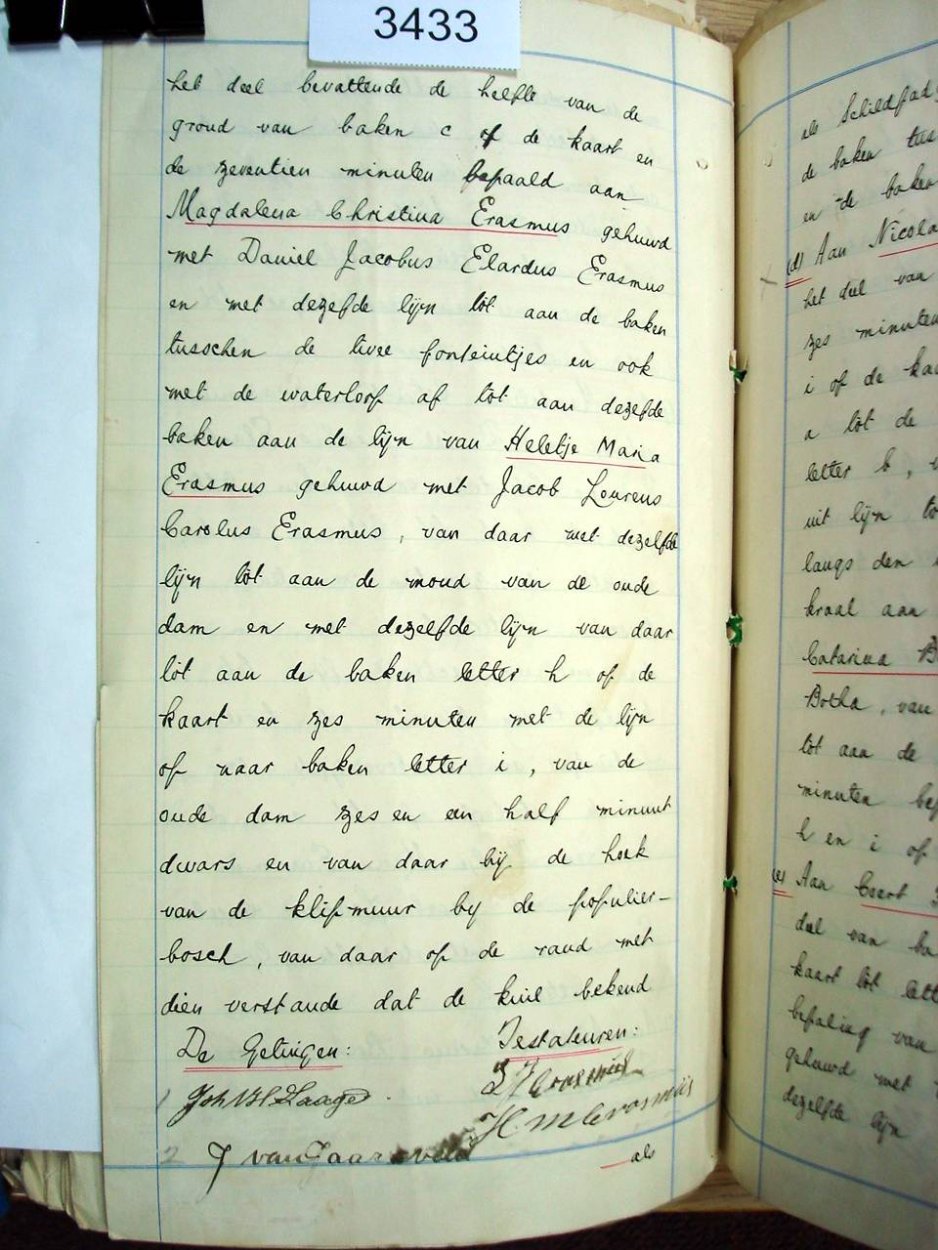 3433
het deel bevattende de helfte van de
grond van baken c of de kaart en
de zeventien minuten bepaald aan
Magdalena Christina Erasmus gehuwd
met Daniel Jacobus Elardus Erasmus
en met dezefde lijn tot aan de baken
tusschen de twee fonteintjes en ook
met de waterloop af tot aan dezefde
baken aan de lijn van Heletje Maria
Erasmus gehuwd met Jacob Lourens
Carolus Erasmus, van daar met dezelfde
lijn tot aan de mond van de oude
dam en met dezelfde lijn van daar
tot aan de baken letter h op de
kaart en zes minuten met de lijn
op naar baken letter i, van de
oude dam zes en een half minuut
dwars en van daar bij de hoek
van de klip-muur by de populier-
bosch, van daar op de rand met
dien verstande dat de kuil bekend
De Getuigen: Testateuren:
1
2 J van Jaarsveld H. M Erasmus
als
als Schildpad
de baken tus
en de baken
(d) Aan Nicola
het deel van
zes minuten
i of de kaa
a tot de
letter b,
uit lijn to
langs den
kraal aan
Catarina B
Botha, van
tot aan de
minuten bep
h en i op
(e) Aan Geert
deel van ba
kaart tot lett
bepaling van
gehuwd met
dezelfde lijn